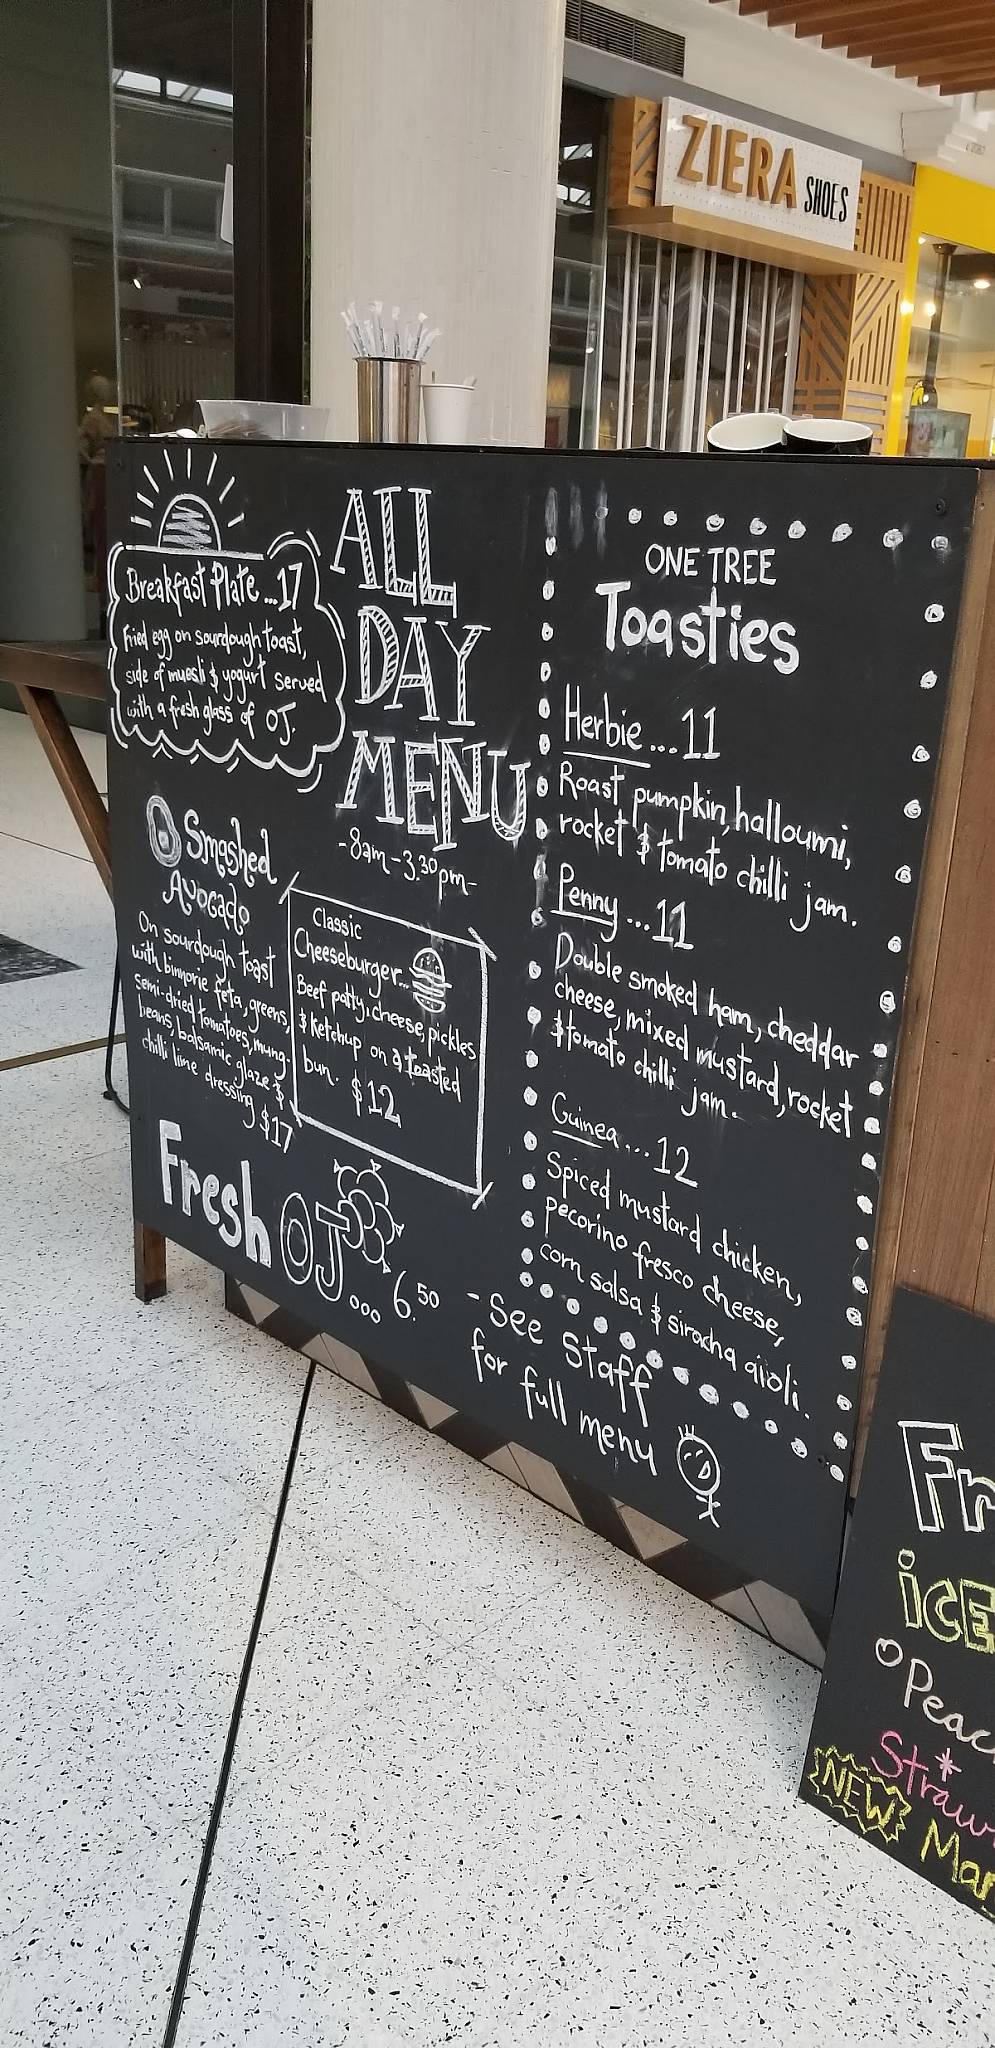 ZIERA SHOES
Breakfast Plate...17
Fried egg on sourdough toast,
side of muesli & yogurt served
with a fresh glass of OJ.
ALL
DAY
MENU
-8am-3.30pm-
Smashed
Avocado
On sourdough toast
with binnorie feta, greens,
semi-dried tomatoes, mung-
beans, balsamic glaze &
chilli lime dressing $17
Classic
Cheeseburger...
Beef patty, cheese, pickles
& ketchup on a toasted
bun. $12
Fresh OJ... 6.50
ONE TREE
Toasties
Herbie...11
Roast pumpkin, halloumi,
rocket & tomato chilli jam.
Penny...11
Double smoked ham, cheddar
cheese, mixed mustard, rocket
& tomato chilli jam.
Guinea...12
Spiced mustard chicken,
pecorino fresco cheese,
corn salsa & siracha aioli.
-See Staff
for full menu
Fr
ICE
Peac
Straw
NEW Man